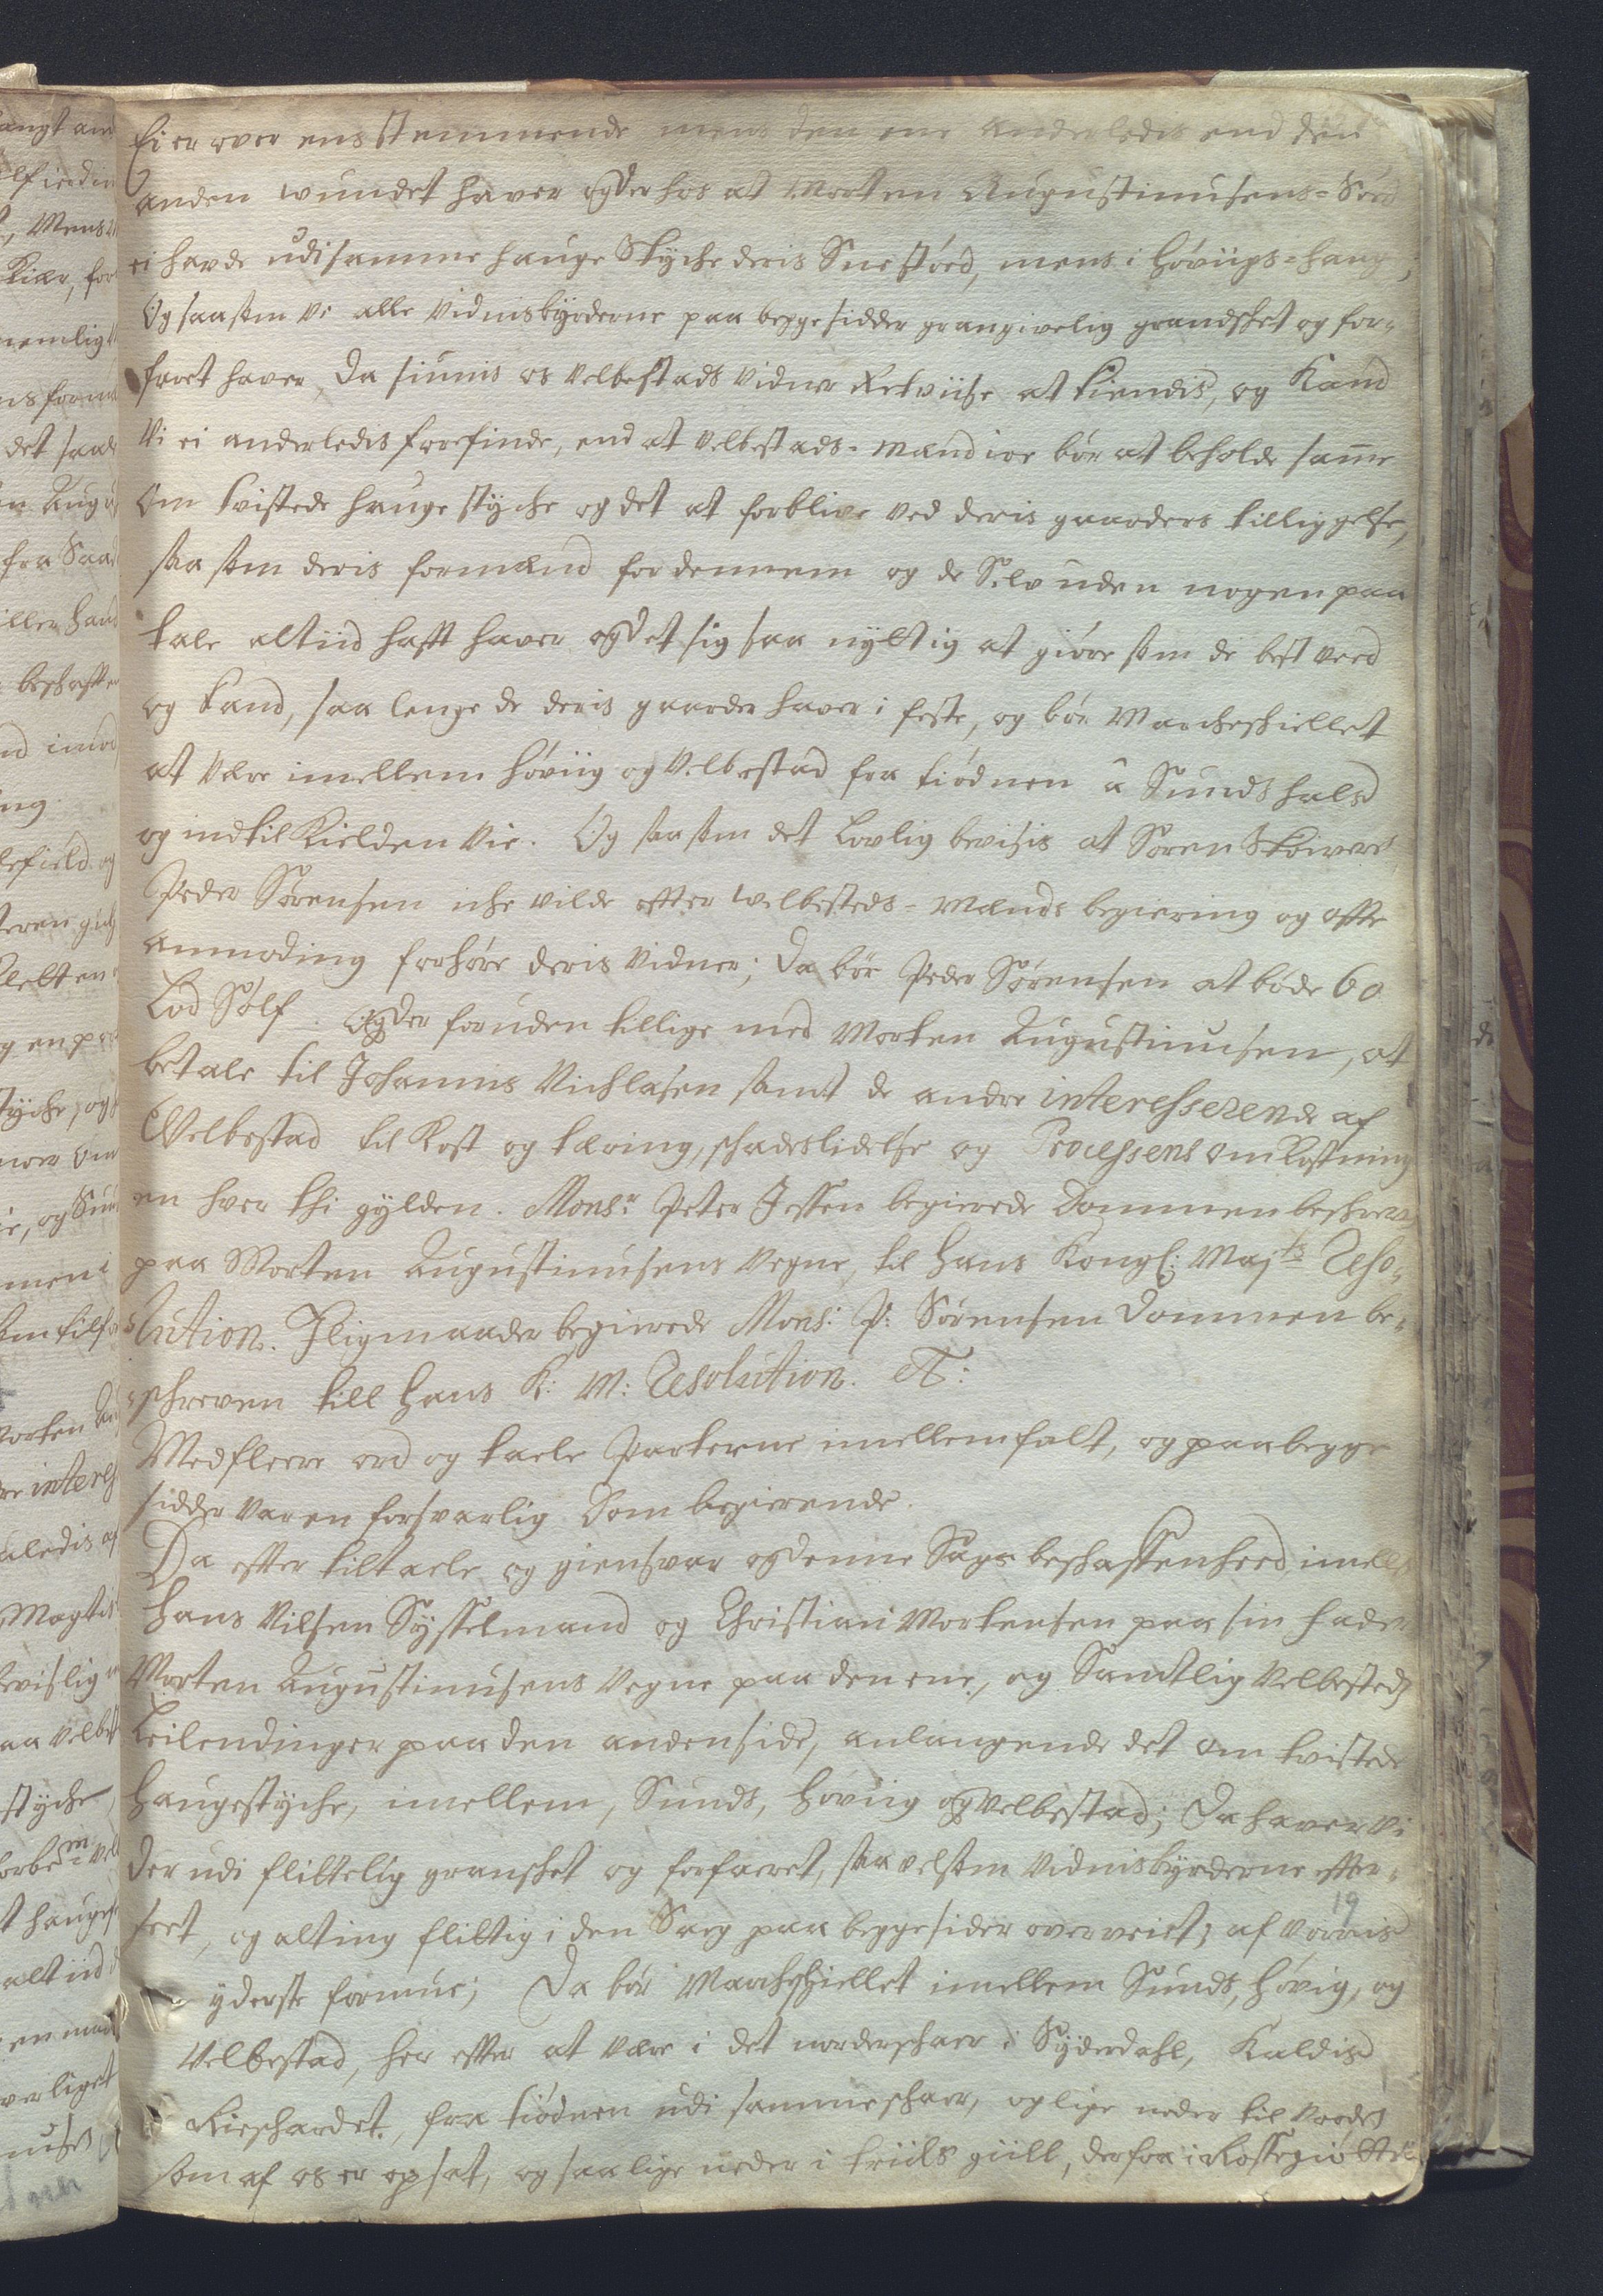 Ei er over ens stemmende mens den ene anderledis end den
anden wundet haver og der hos at Morten Augustinusens-Søed
ei havde udi samme hauge Stÿche deris Snestøed, mens i høviigs-haug;
Og saasom Vi alle Vidnisbÿrderne paa begge sidder grangivelig grandsket og for-
faret haver, da siunis os Velbestads vidner Retviise at kiendis, og Kand
Vi ei anderledis forefinde, end at Velbestads-Mænd ioe bør at beholde samme
Om tvistede hauge stÿche og det at forblive ved deris gaarders tilliggelse,
saa som deris formænd for dennem og de Selv uden nogen paa
tale altiid hafft haver og det sig saa nÿttig at giøre som de best veed
og kand, saa lenge de deris gaarder haver i feste, og bør Marcheskiellet
at være imellem høviig og Velbestad fra tiødnen â Sunds hals
og indtil Kielden Vie. Og saasom det Lovlig bevisis at Soren Skriver
Peder Sørensen iche vilde efter welbesteds-Mænds begiering og offte
anmoding forhøre deris Vidner; da bør Peder Sørensen at bøde 60
Lod Sølf. Og der foruden tillige med Morten Augustinusen, at
betale til Johannis Nichlasen samt de andre interesserende af
Welbestad til Kost og tæring, schadeslidelse og Processens omkostning
en hver thi gÿlden. Monsr Peter Jessen begierede dommen beschreven
paa Morten Augustinusens Vegne, til hans Kongl: Majts Reso-
lution. Iligmaader begierede Mons: P: Sørensen dommen be-
schreven till hans K: M: Resolution. et:
Med fleere ord og taele Parterne imellemfalt, og paa begge
sidder var en forsvarlig dom begierende.
Da efter tiltaele og giensvar og denne Sags beschaffenheed, imell
hans Nilsen Sÿsselmand og Christian Mortensen paa sin fader
Morten Augustinusens Vegne paa den ene, og Samtlig Velbesteds
Leilendinger paa den anden side, anlangende det om tvistede
haugestÿche, imellem, Sunds, høviig og Velbestad; da haver Vi
der udi flittelig gransket og forfaret, saavelsom Vidnisbÿrderne effter-
seet, og alting flittig i den Sag paa begge sider overveiet; af vorris
19
ÿderste formue; Da bør Marcheskiellet imellem Sunds, høvig, og
Velbestad, her effter at være i det norderschaer i Sÿderdahl, Kaldis
Rieschardet, fra tiødnen udi samme schaer, og lige neder til Vordes
som af os er opsat, og saa lige neder i triils giill, derfra i Rossegiøttel